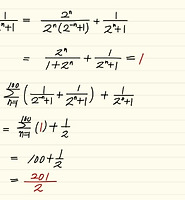 1/(2ⁿ+1) = 2ⁿ/(2ⁿ(2⁻ⁿ+1)) + 1/(2ⁿ+1)
= 2ⁿ/(1+2ⁿ) + 1/(2ⁿ+1) = 1
∑_{n=1}^{100} (1/(2⁻ⁿ+1) + 1/(2ⁿ+1)) + 1/(2ⁿ+1)
= ∑_{n=1}^{100} (1) + 1/2
= 100 + 1/2
= 201/2